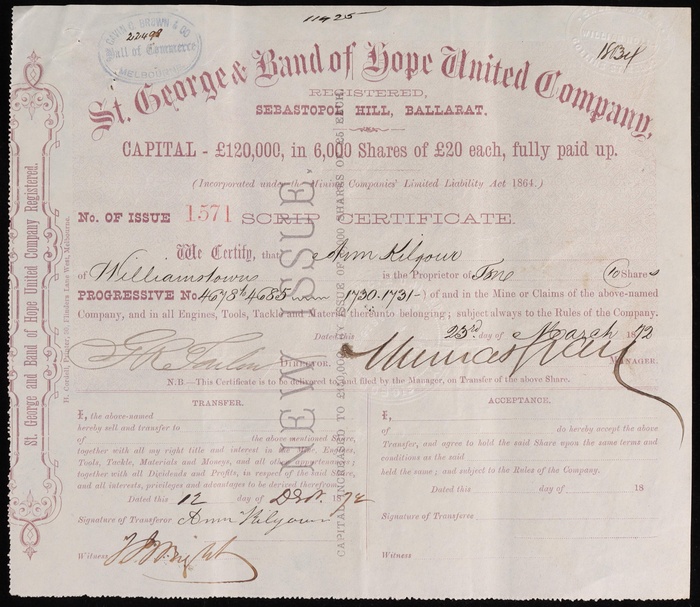 11425
GAVIN G. BROWN & CO
22498
Hall of Commerce
MELBOURNE
St. George & Band of Hope United Company,
REGISTERED,
SEBASTOPOL HILL, BALLARAT.
CAPITAL - £120,000, in 6,000 Shares of £20 each, fully paid up.
(Incorporated under the Mining Companies' Limited Liability Act 1864.)
No. OF ISSUE 1571 SCRIP CERTIFICATE.
We Certify, that Ann Kilgour
of Williamstown is the Proprietor of Ten (10) Shares
PROGRESSIVE No. 4678 to 4685 1730.1731 - ) of and in the Mine or Claims of the above-named
Company, and in all Engines, Tools, Tackle and Material thereunto belonging; subject always to the Rules of the Company.
Dated this 23rd day of March 1872
DIRECTOR. MANAGER.
N.B.—This Certificate is to be delivered to and filed by the Manager, on Transfer of the above Share.
TRANSFER.
£, the above-named
hereby sell and transfer to
of the above mentioned Share,
together with all my right title and interest in the Mine, Engines,
Tools, Tackle, Materials and Moneys, and all other appurtenances;
together with all Dividends and Profits, in respect of the said Share,
and all interests, privileges and advantages to be derived therefrom.
Dated this 12 day of 18 72
Signature of Transferor Ann Kilgour
Witness
ACCEPTANCE.
£,
of do hereby accept the above
Transfer, and agree to hold the said Share upon the same terms and
conditions as the said
held the same; and subject to the Rules of the Company.
Dated this day of 18
Signature of Transferee
Witness
St. George and Band of Hope United Company Registered.
NEW ISSUE.